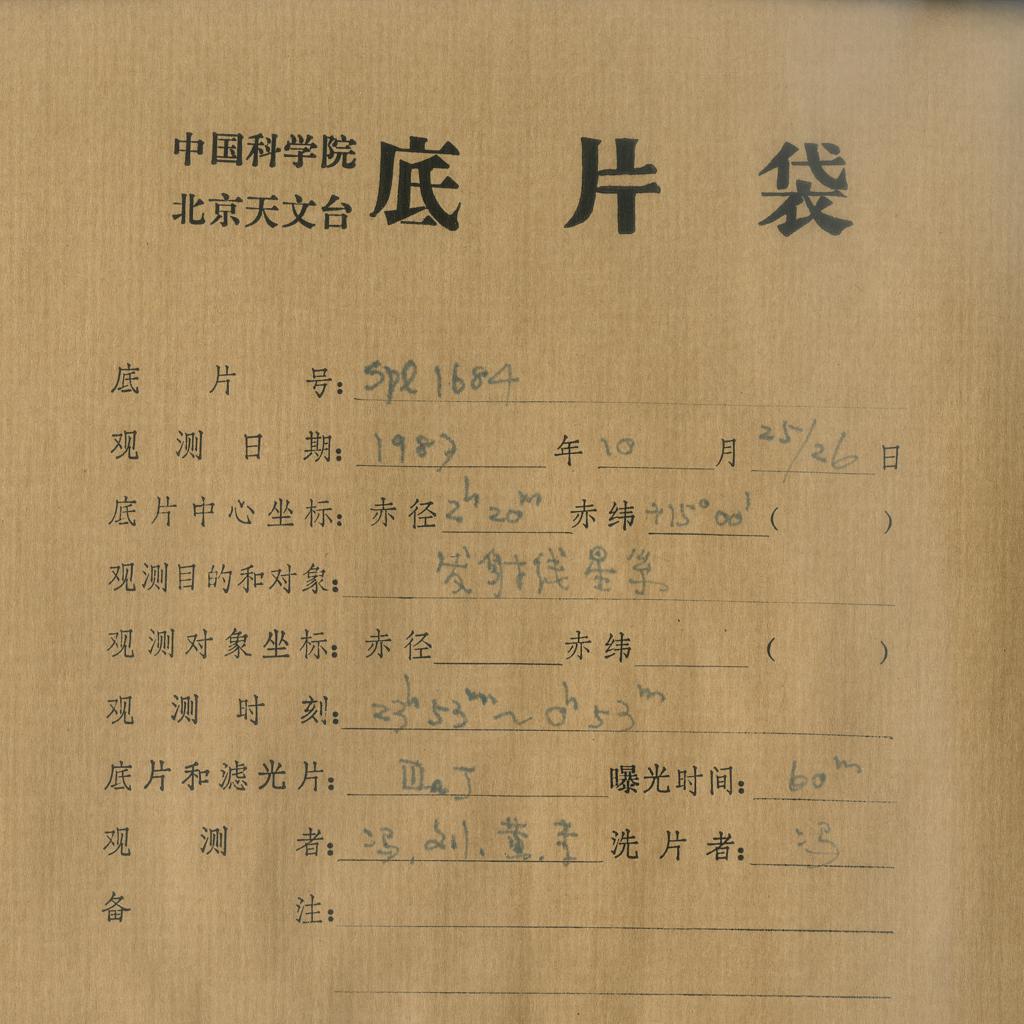 中国科学院
北京天文台 底片袋
底片号: Spl 1684
观测日期: 1983 年 10 月 25/26 日
底片中心坐标: 赤径 2h 20m 赤纬 +15° 00' ( )
观测目的和对象: 发射线星系
观测对象坐标: 赤径 赤纬 ( )
观测时刻: 23h 53m ~ 0h 53m
底片和滤光片: IIIaJ 曝光时间: 60m
观测者: 冯, 刘, 黄, 李 洗片者: 冯
备注: